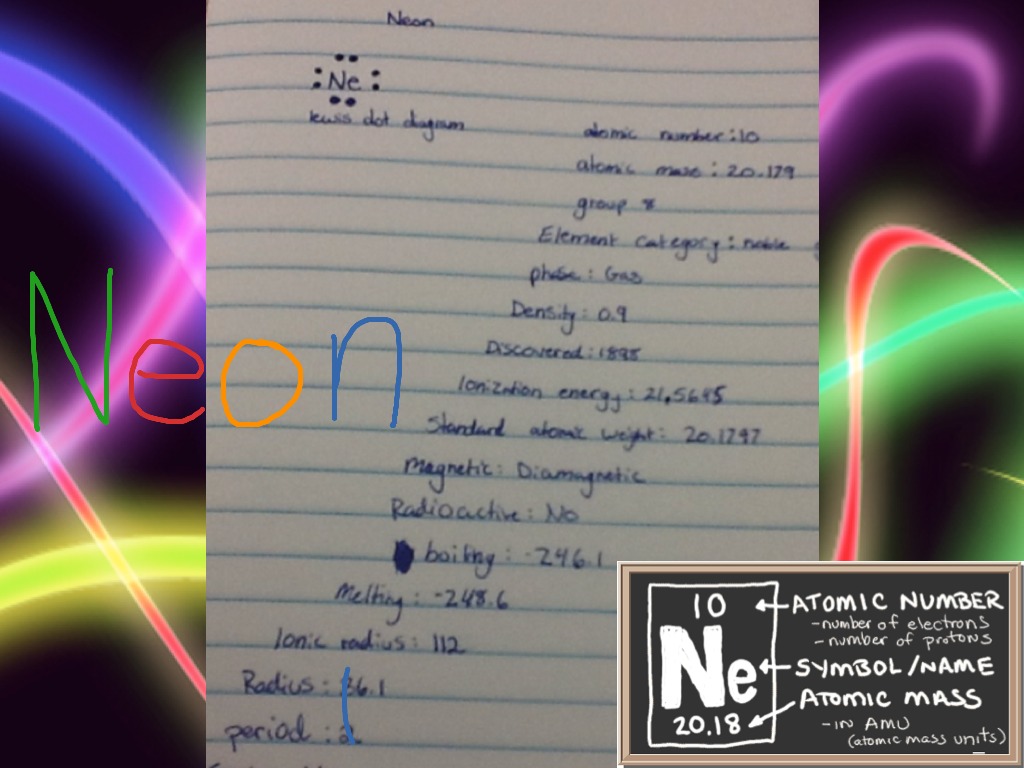 Neon
Ne
lewis dot diagram
atomic number: 10
atomic mass: 20.179
group 8
Element category: noble
phase: Gas
Density: 0.9
Discovered: 1898
Ionization energy: 21,5645
Standard atomic weight: 20.1797
Magnetic: Diamagnetic
Radioactive: No
boiling: -246.1
Melting: -248.6
Ionic radius: 112
Radius: 36.1
period: 2
Neon
10
Ne
20.18
ATOMIC NUMBER
-number of electrons
-number of protons
SYMBOL/NAME
ATOMIC MASS
-IN AMU
(atomic mass units)